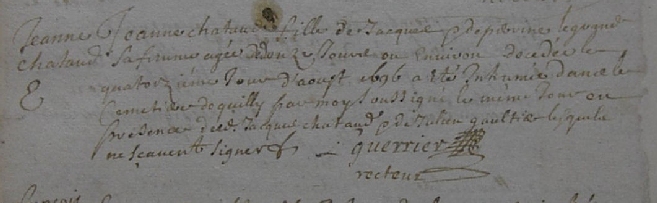 Jeanne Jeanne chataud fille de Jacque & de perrine legrand
chataud sa femme agée de douze Jours ou environ decedée le
quatorzième Jour d'aoust 1696 a eté Inhumée dans le
Cemetiere de quilly par moy soussigné le même Jour en
presence desd. Jacque chataud & de Julien gaultier lesquels
ne sçavent signer
guerrier
recteur